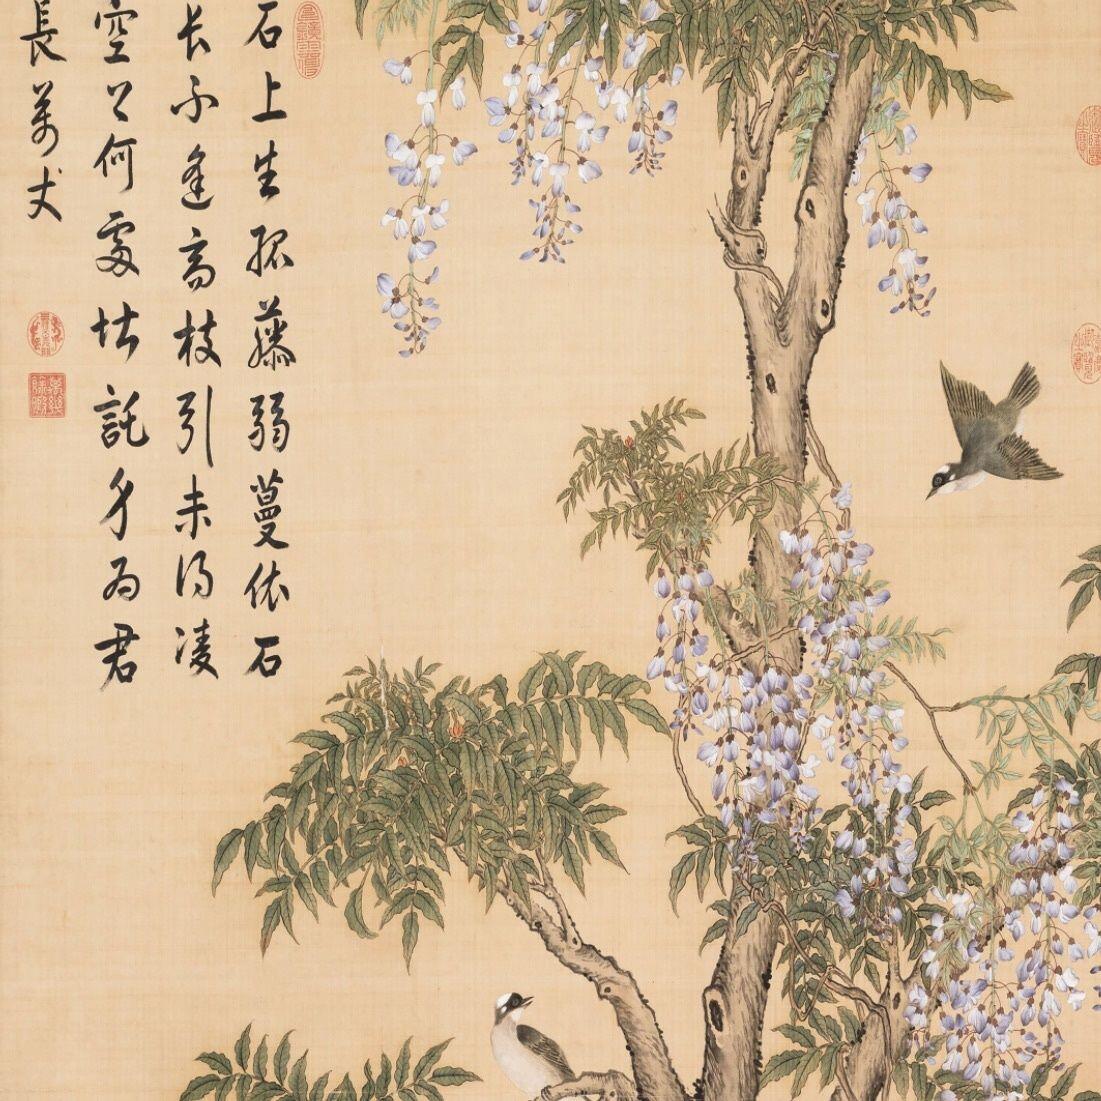 石上生孤藤弱蔓依石
長不逢高枝引未得凌
空上何處堪託身為君
長萬丈